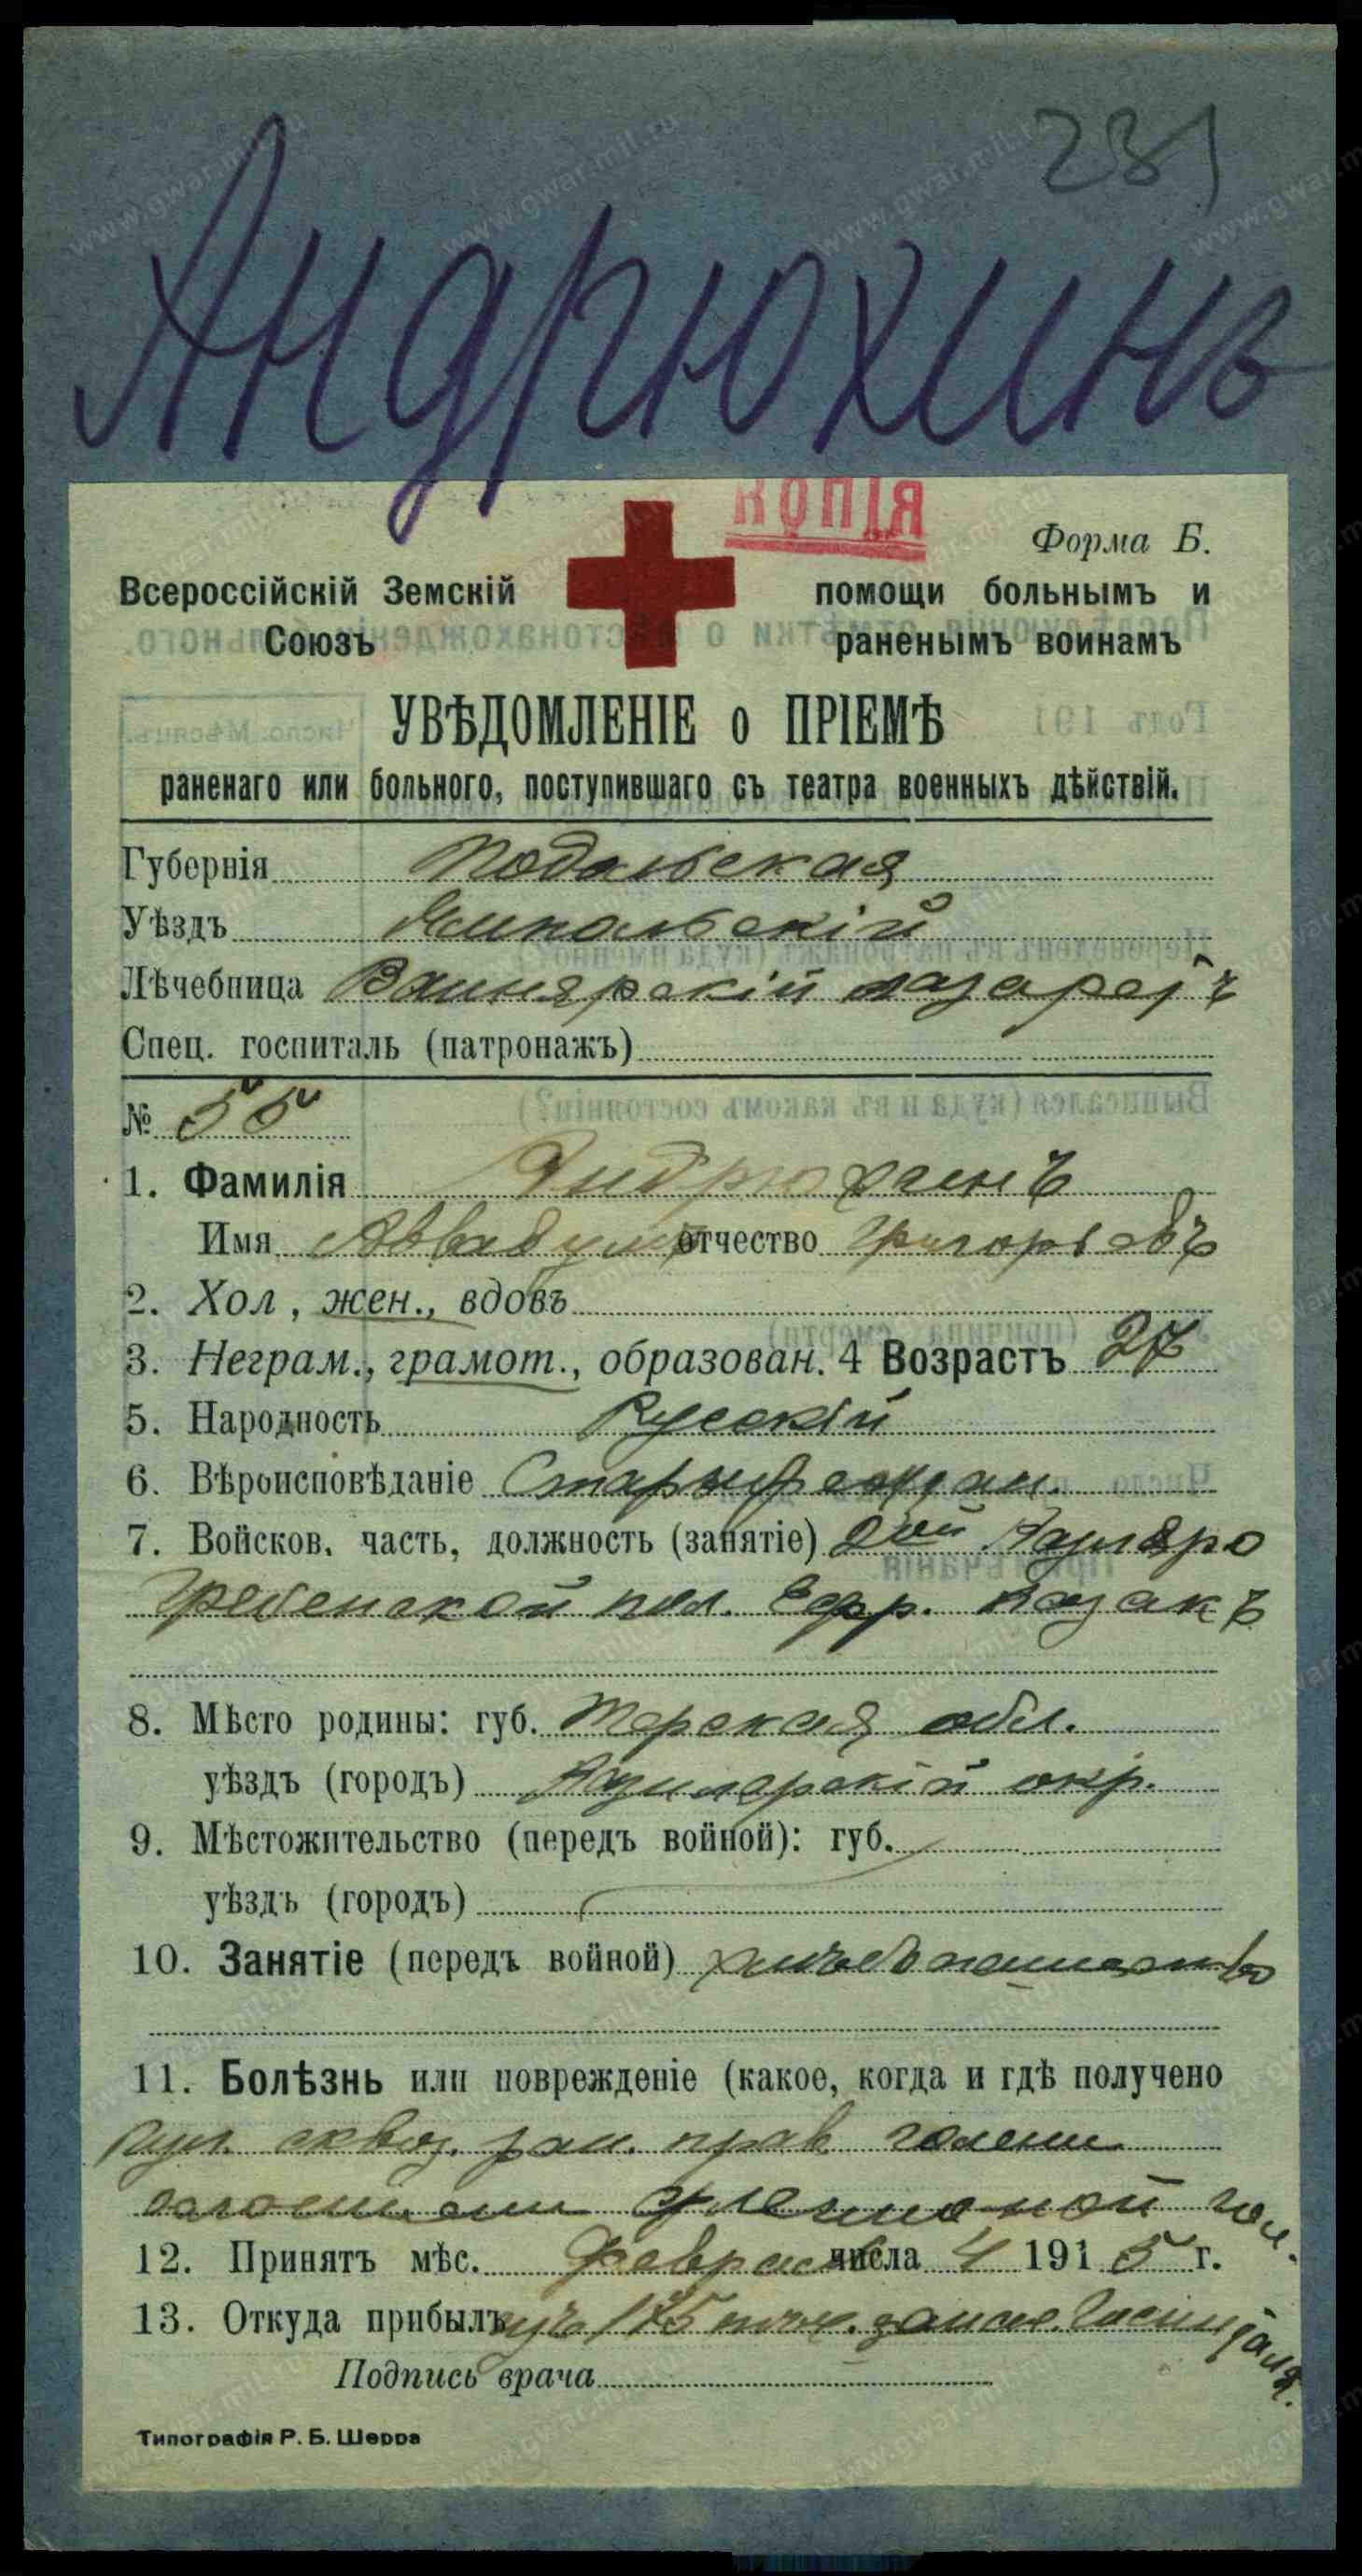 231
Андрюхинъ
КОПІЯ
Форма Б.
Всероссійскій Земскій
Союзъ
помощи больнымъ и
раненымъ воинамъ
УВѢДОМЛЕНІЕ о ПРІЕМѢ
раненаго или больного, поступившаго съ театра военныхъ дѣйствій.
Губернія Подольская
Уѣздъ Ямпольскій
Лѣчебница Вапнярскій лазаретъ
Спец. госпиталь (патронажъ)
№ 55
1. Фамилія Андрюхинъ
Имя отчество Григорьевъ
2. Хол, жен., вдовъ
3. Неграм., грамот., образован. 4 Возрастъ 27
5. Народность Русскій
6. Вѣроисповѣданіе
7. Войсков. часть, должность (занятіе) 2ой Кизляро
Гребенской пол. казакъ
8. Мѣсто родины: губ. Терская обл.
уѣздъ (городъ) Кизлярскій окр.
9. Мѣстожительство (передъ войной): губ.
уѣздъ (городъ)
10. Занятіе (передъ войной) хлѣбопашество
11. Болѣзнь или поврежденіе (какое, когда и гдѣ получено
пул. сквоз. ран. прав. голени
12. Принятъ мѣс. Февраля числа 4 1915 г.
13. Откуда прибылъ изъ 175 запас. госпиталя.
Подпись врача
Типографія Р. Б. Шерра